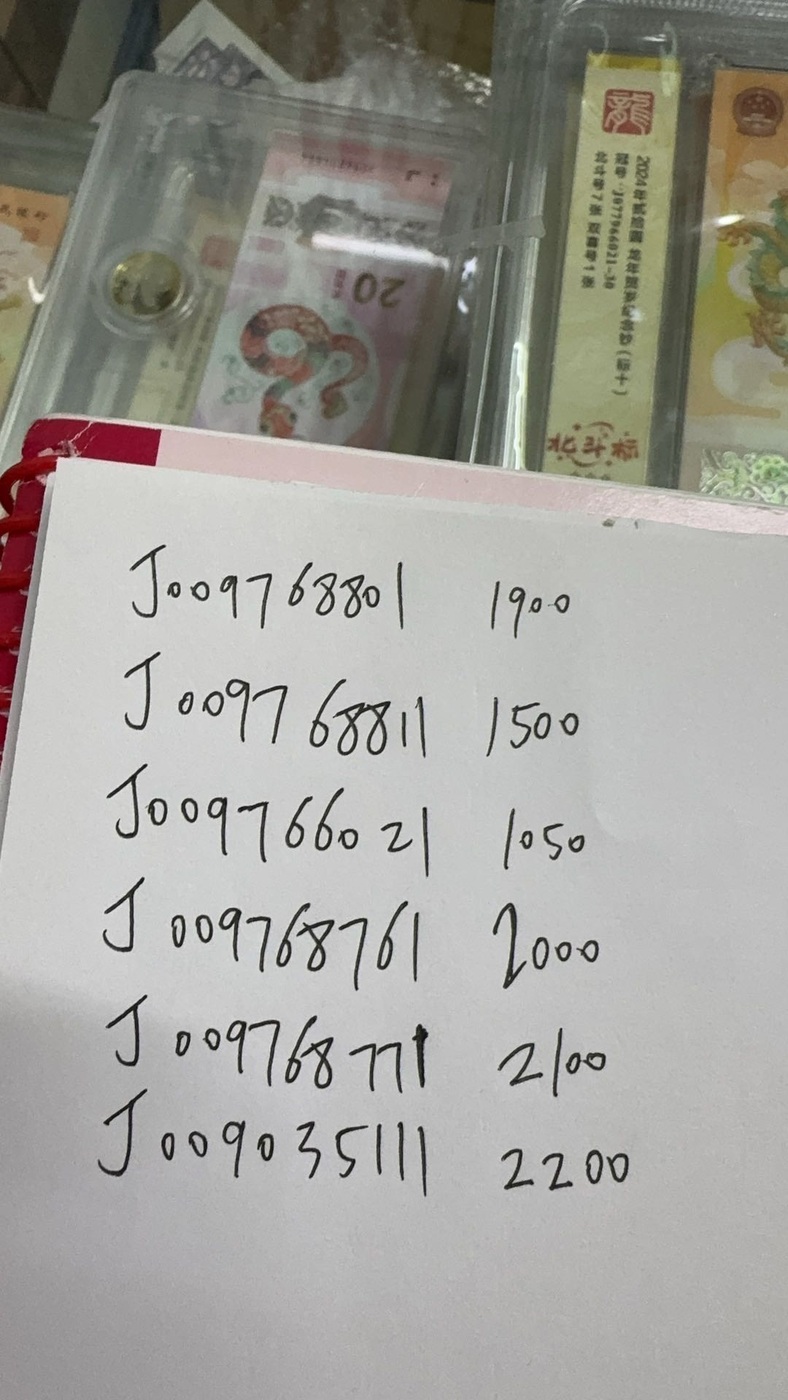 20
龍
2024年贰拾圆 龙年贺岁纪念钞(标十)
冠号:J077966021-30
北斗号7张 双喜号1张
J009768801 1900
J009768811 1500
J009766021 1050
J009768761 2000
J009768771 2100
J009035111 2200